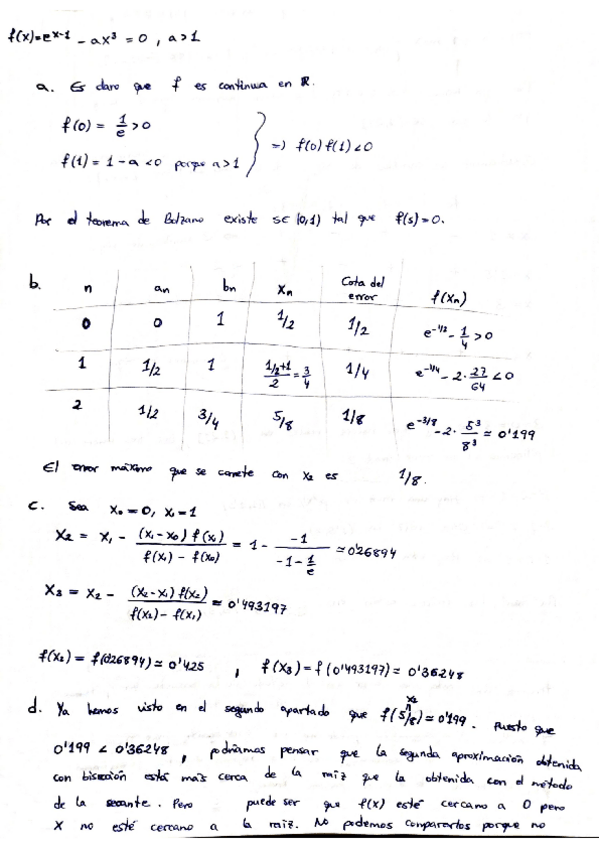 f(x)=e^{x-1} - ax³ = 0 , a>1
a. Es claro que f es continua en ℝ.
f(0) = 1/e > 0
f(1) = 1-a < 0 porque a>1
=> f(0) f(1) < 0
Por el teorema de Bolzano existe s∈(0,1) tal que f(s)=0.
b. n an bn Xn Cota del error f(Xn)
0 0 1 1/2 1/2 e^{-1/2} - 1/4 > 0
1 1/2 1 (1/2+1)/2 = 3/4 1/4 e^{-1/4} - 2· 27/64 < 0
2 1/2 3/4 5/8 1/8 e^{-3/8} - 2· 5³/8³ ≃ 0'199
El error máximo que se comete con x₂ es 1/8.
c. Sea X₀=0, X₁=1
X₂ = X₁ - (X₁-X₀) f(X₁) / f(X₁) - f(X₀) = 1 - -1 / -1 - 1/e ≃ 0'26894
X₃ = X₂ - (X₂-X₁) f(X₂) / f(X₂) - f(X₁) ≃ 0'493197
f(X₂) = f(0'26894) ≃ 0'425 , f(X₃) = f(0'493197) ≃ 0'36248
d. Ya hemos visto en el segundo apartado que f(5/8) ≃ 0'199. Puesto que
0'199 < 0'36248 , podríamos pensar que la segunda aproximación obtenida
con bisección está más cerca de la raíz que la obtenida con el método
de la secante. Pero puede ser que f(x) esté cercano a 0 pero
X no esté cercano a la raíz. No podemos compararlos porque no